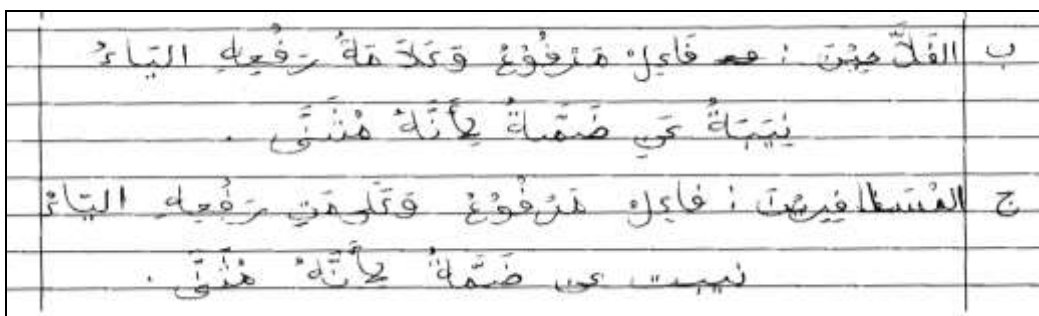 ب الفَلاَّحِيْنَ : فَاعِلْ مَرْفُوْعْ وَعَلاَمَةُ رَفْعِهِ اليَاءُ
نِيَبَةُ عَنِ ضَمَّةُ لِأَنَّهُ مُثَنًّى .
ج المُسَافِرِيْنَ : فَاعِلْ مَرْفُوْعْ وَعَلَيمَتِ رَفْعِهِ اليَاءُ
نيبت عن ضَمَّةُ لِأَنَّهُ مُثَنًّى .